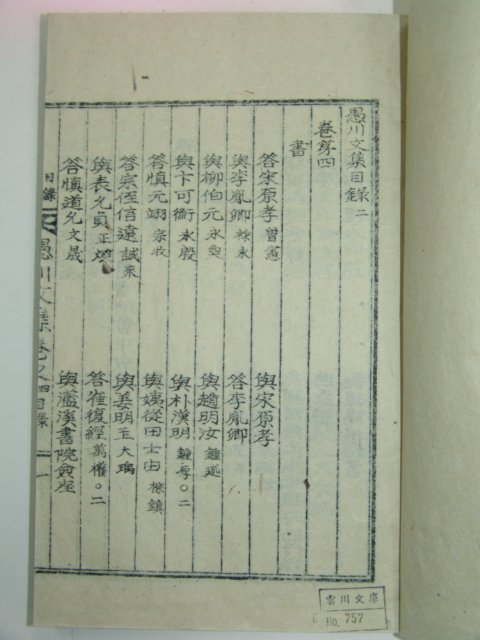 愚川文集目錄 二
卷第四
書
答宋原孝 曾憲
與宋原孝
與李胤卿 秉永
答李胤卿
與柳伯元 永奭
與趙明汝 鍾
與卞可衡 永殷
與朴漢明 鍾厚○二
答愼元翊 宗牧
與姨從田士由 檪鎭
答宗侄信遠 誠來
與姜明玉 大瑀
與表允貞 正煥
答崔復經 萬權○二
答愼道允 文晟
與濫溪書院僉座
目錄
愚川文集 卷之四 目錄 一
雲川文庫
No. 757